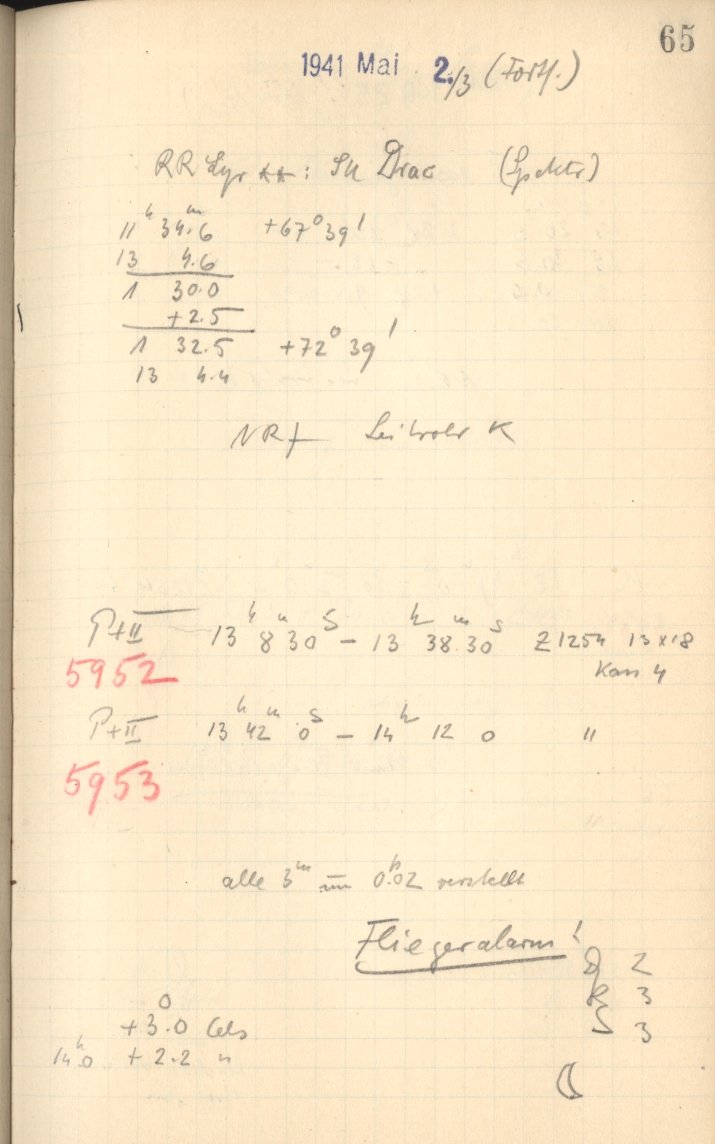 65
1941 Mai 2./3 (Fortf.)
RR Lyr **: SU Drac (Spektr)
11ʰ 34ᵐ.6 +67° 39'
13 4.6
1 30.0
+2.5
1 32.5 +72° 39'
13 4.4
NR† Leitrohr K
P+II 13ʰ 8ᵐ 30ˢ – 13ʰ 38ᵐ 30ˢ Z 1254 13x18
5952 Kass 4
P+II 13ʰ 42ᵐ 0ˢ – 14ʰ 12 0 "
5953
alle 3ᵐ um 0.02 verstellt
Fliegeralarm!
D 2
R 3
S 3
+3°.0 Cels
14ʰ.0 +2.2 "